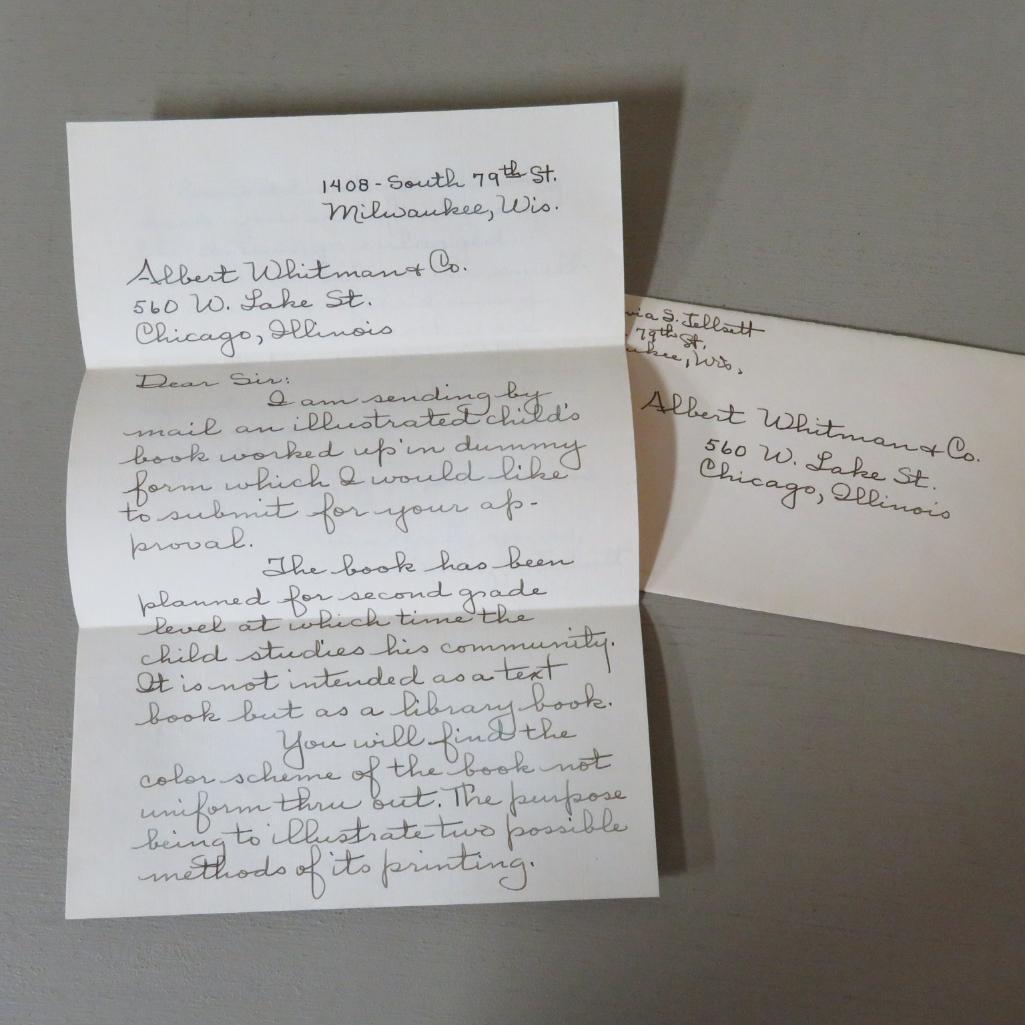 1408 - South 79th St.
Milwaukee, Wis.
Albert Whitman & Co.
560 W. Lake St.
Chicago, Illinois
Dear Sir:
I am sending by
mail an illustrated child's
book worked up in dummy
form which I would like
to submit for your ap-
proval.
The book has been
planned for second grade
level at which time the
child studies his community.
It is not intended as a text
book but as a library book.
You will find the
color scheme of the book not
uniform thru out. The purpose
being to illustrate two possible
methods of its printing.
S.
79th St.
Wis.
Albert Whitman & Co.
560 W. Lake St.
Chicago, Illinois